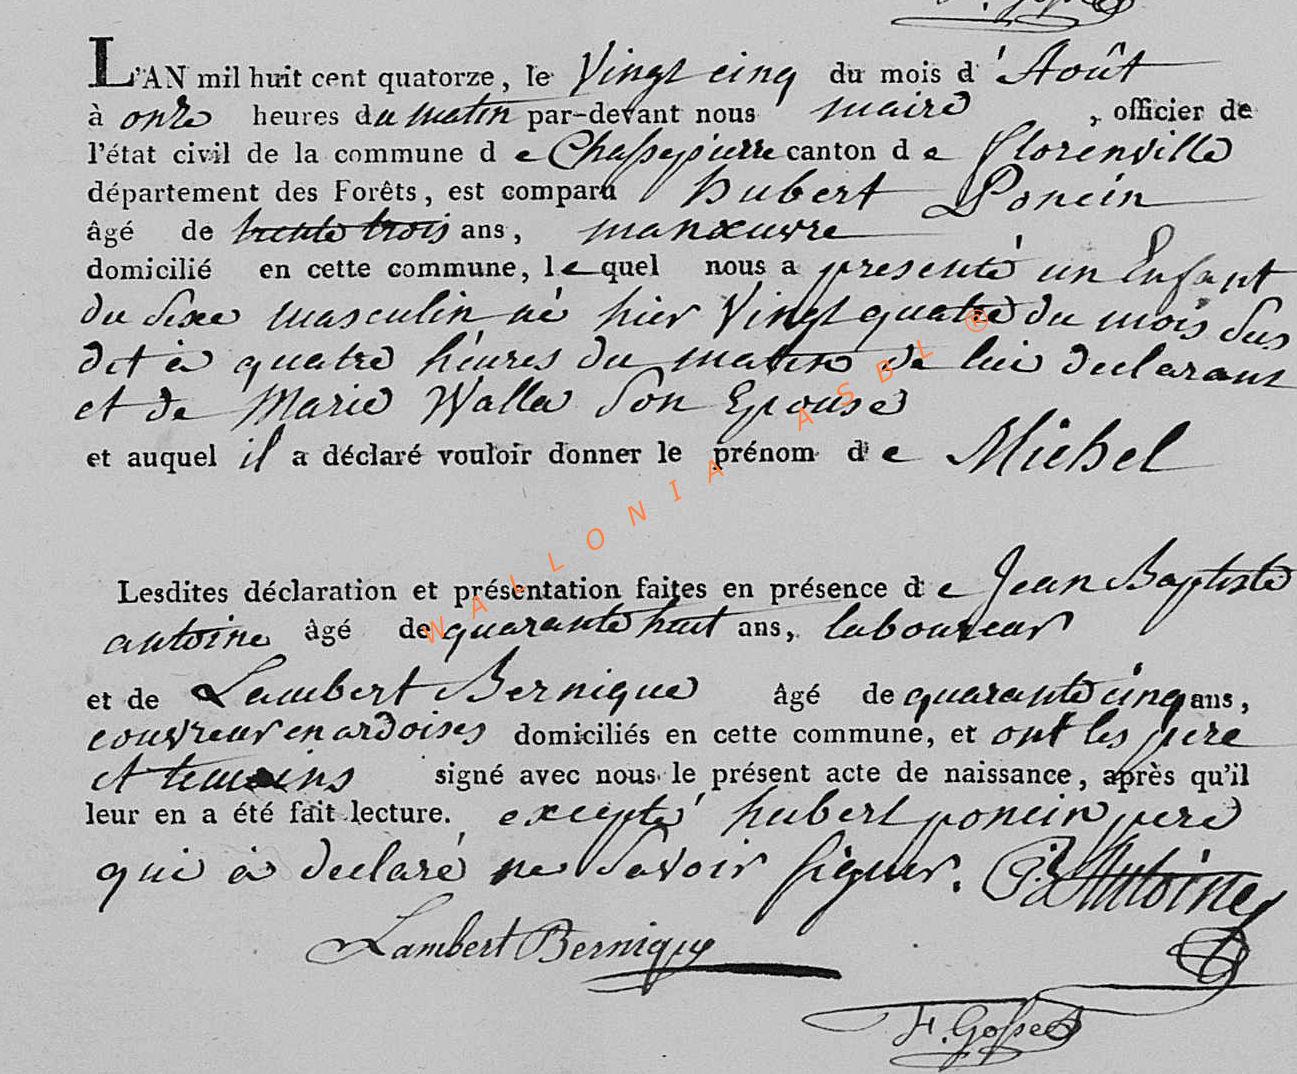 L'AN mil huit cent quatorze, le Vingt cinq du mois d'Août
à onze heures du matin par-devant nous maire , officier de
l'état civil de la commune de Chassepierre canton de florenville
département des Forêts, est comparu hubert Poncin
âgé de trente trois ans, manœuvre
domicilié en cette commune, lequel nous a presenté un Enfant
du Sexe masculin né hier Vingt quatre du mois Sus
dit à quatre héures du matin de lui declarant
et de Marie Walla Son Epouse
et auquel il a déclaré vouloir donner le prénom de Michel
Lesdites déclaration et présentation faites en présence de Jean Baptiste
antoine âgé de quarante huit ans, laboureur
et de Lambert Bernique âgé de quarante cinq ans,
couvreur en ardoises domiciliés en cette commune, et ont les pere
et temoins signé avec nous le présent acte de naissance, après qu'il
leur en a été fait lecture. excepté hubert poncin pere
qui à declaré ne Savoir signer. Antoine
Lambert Bernique
F. Gosse
WALLONIA ASBL ®